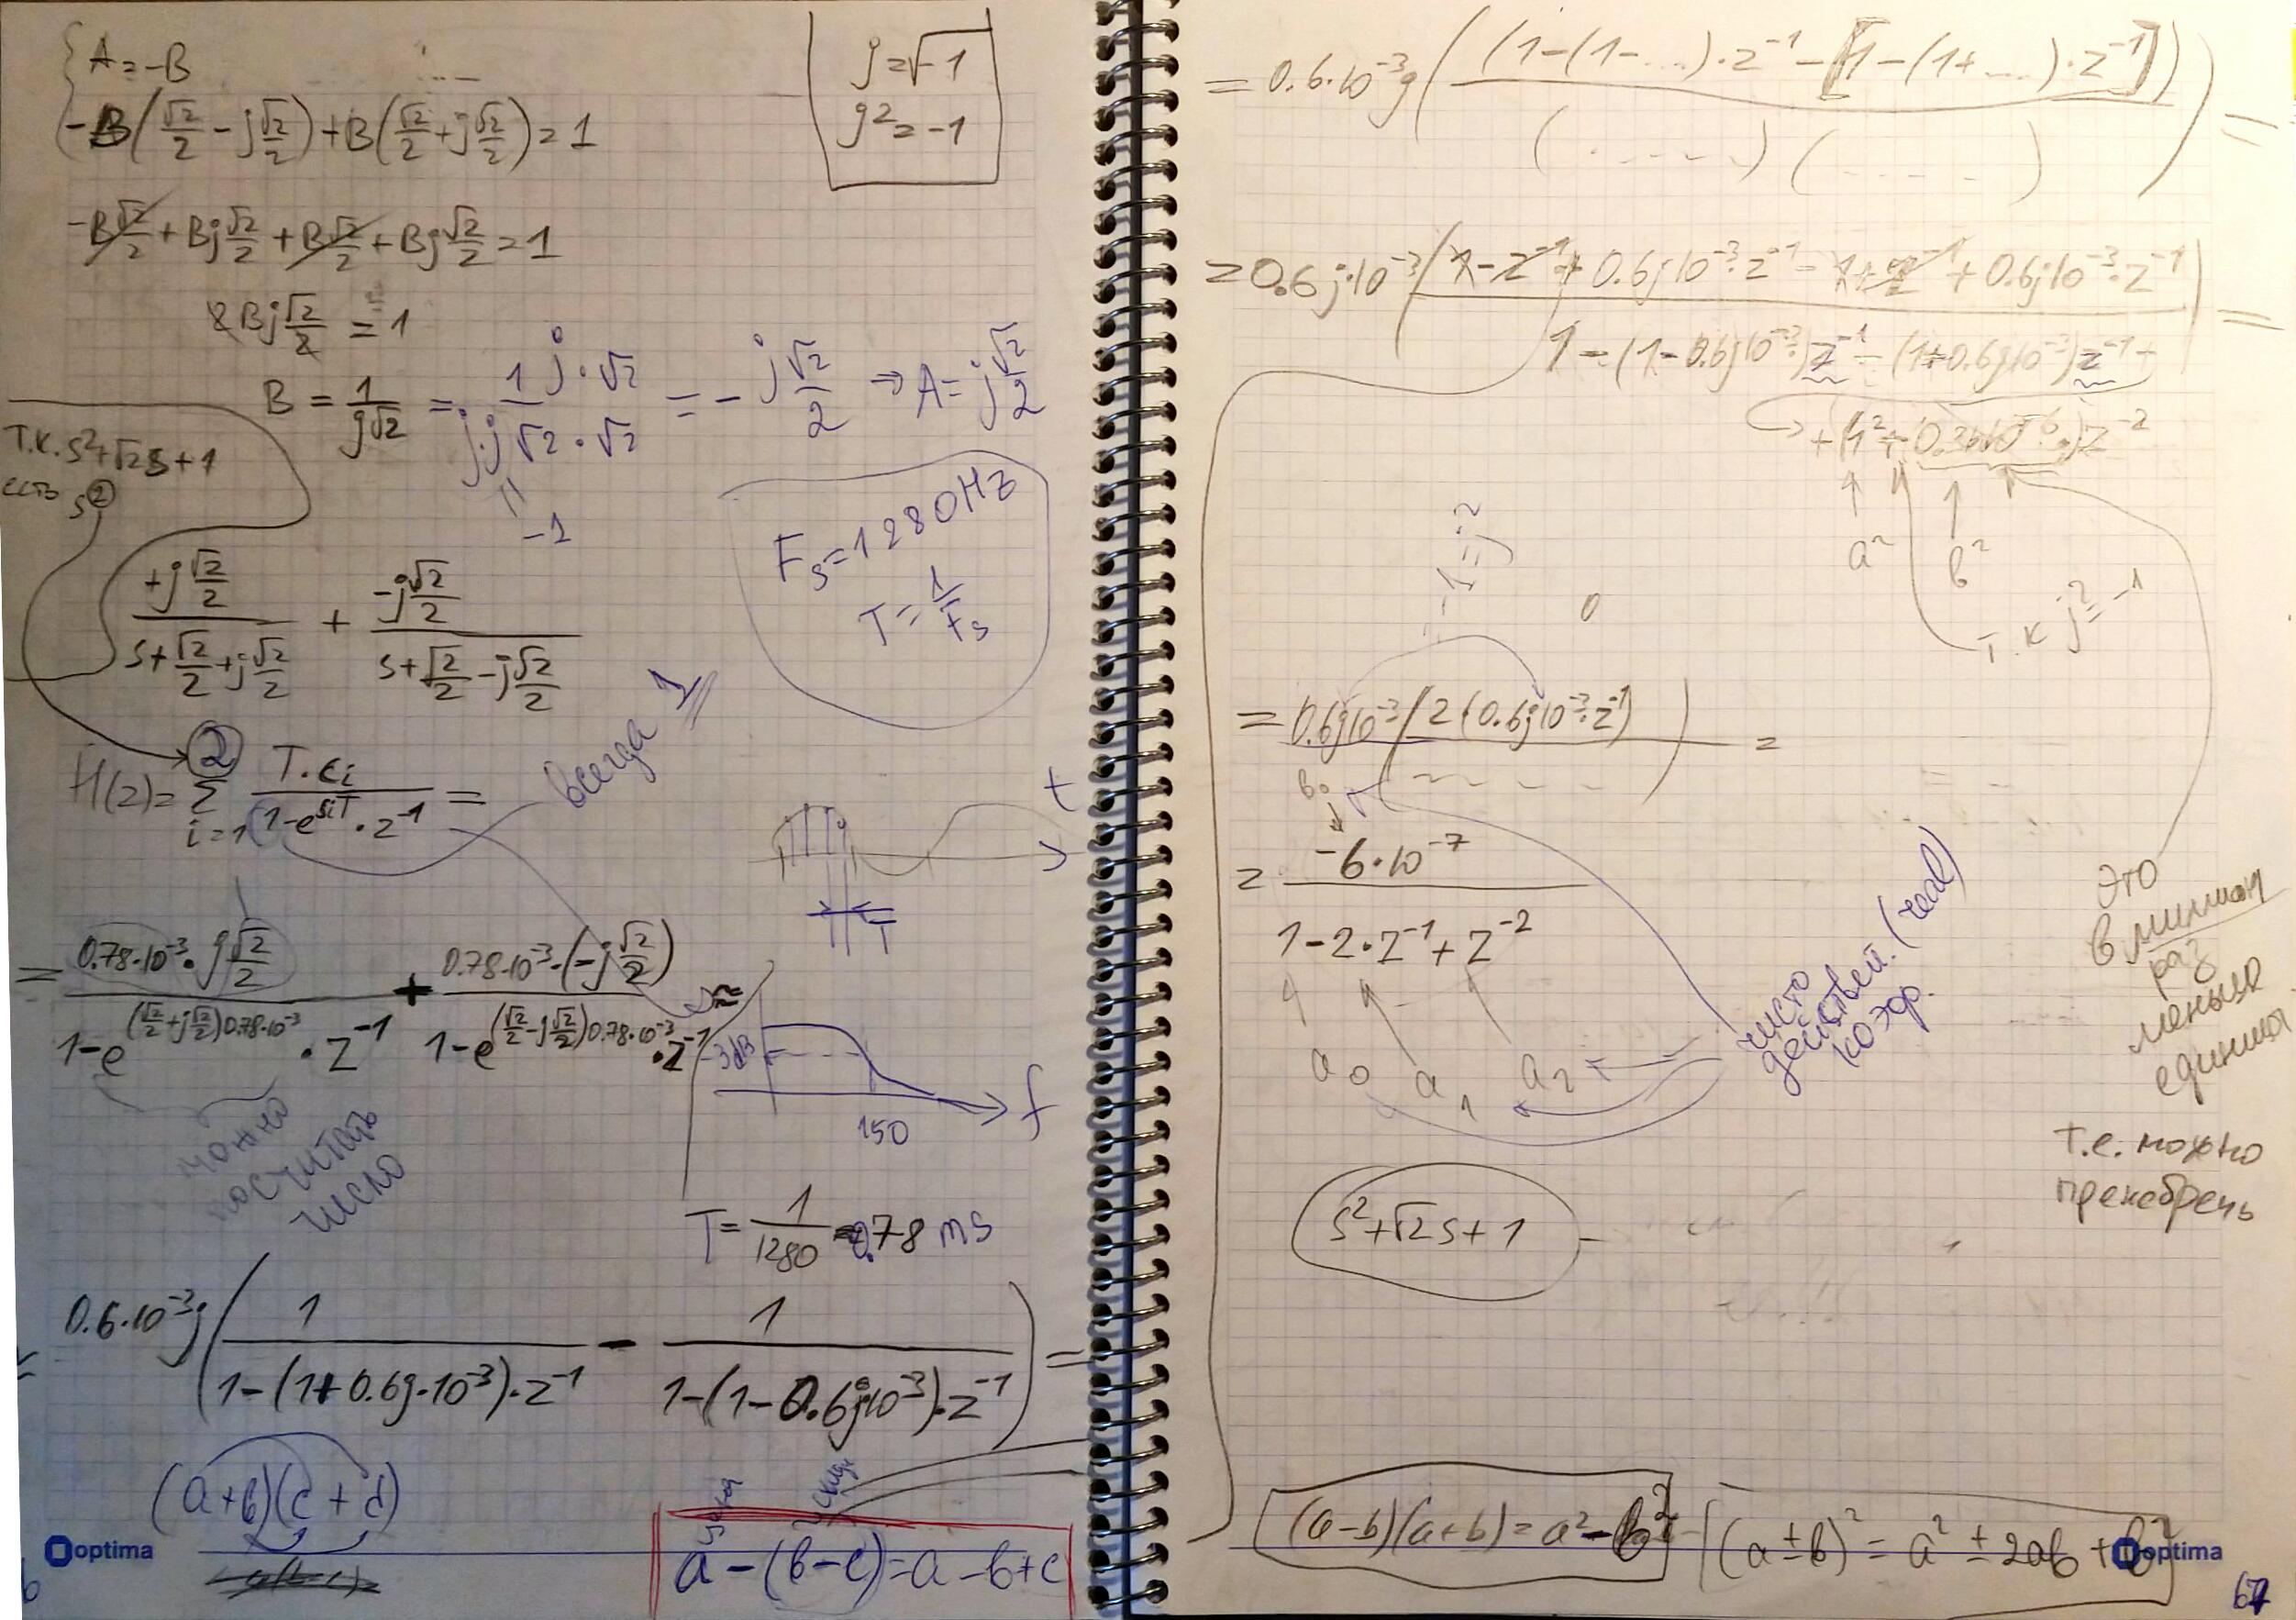 A = -B
-B(√2/2 - j√2/2) + B(√2/2 + j√2/2) = 1
-B√2/2 + Bj√2/2 + B√2/2 + Bj√2/2 = 1
2Bj√2/2 = 1
B = 1/(j√2) = (1 j·√2)/(j·j√2·√2) = -j√2/2 → A = j√2/2
=
-1
j = √-1
j² = -1
т.к. s²+√2s+1
есть s²
Fs = 1280Hz
T = 1/Fs
(+j√2/2)/(s+√2/2+j√2/2) + (-j√2/2)/(s+√2/2-j√2/2)
H(z) = 2 Σ i=1 (T·ci)/(1-e^(siT)·z⁻¹) =
всегда 1
t
T
= (0.78·10⁻³·j√2/2)/(1-e^((√2/2+j√2/2)0.78·10⁻³)·z⁻¹) + (0.78·10⁻³·(-j√2/2))/(1-e^((√2/2-j√2/2)0.78·10⁻³)·z⁻¹) ≈
можно
посчитать
число
-3dB
150
f
T = 1/1280 = 0.78 ms
0.6·10⁻³j(1/(1-(1+0.6j·10⁻³)·z⁻¹) - 1/(1-(1-0.6j10⁻³)·z⁻¹)) =
(a+b)(c+d)
a-(b-c)=a-b+c
optima
= 0.6·10⁻³j((1-(1-...)·z⁻¹-[1-(1+...)·z⁻¹])/((.....)(.....))) =
= 0.6j·10⁻³((1-z⁻¹+0.6j10⁻³·z⁻¹-1+z⁻¹+0.6j10⁻³·z⁻¹)/(1-(1-0.6j10⁻³)z⁻¹-(1+0.6j10⁻³)z⁻¹+
+(1²+0.36·10⁻⁶)z⁻²
a²
b²
т.к j²=-1
-1=j²
0
= 0.6j10⁻³(2(0.6j10⁻³·z⁻¹)/(-----)) =
b₀
= (-6·10⁻⁷)/(1-2·z⁻¹+z⁻²)
a₀ a₁ a₂
чисто
действей. (real)
коэф.
это
в миллион
раз
меньше
единицы
т.е. можно
пренебречь
s²+√2s+1
(a-b)(a+b)=a²-b²
(a±b)²=a²±2ab+b²
optima